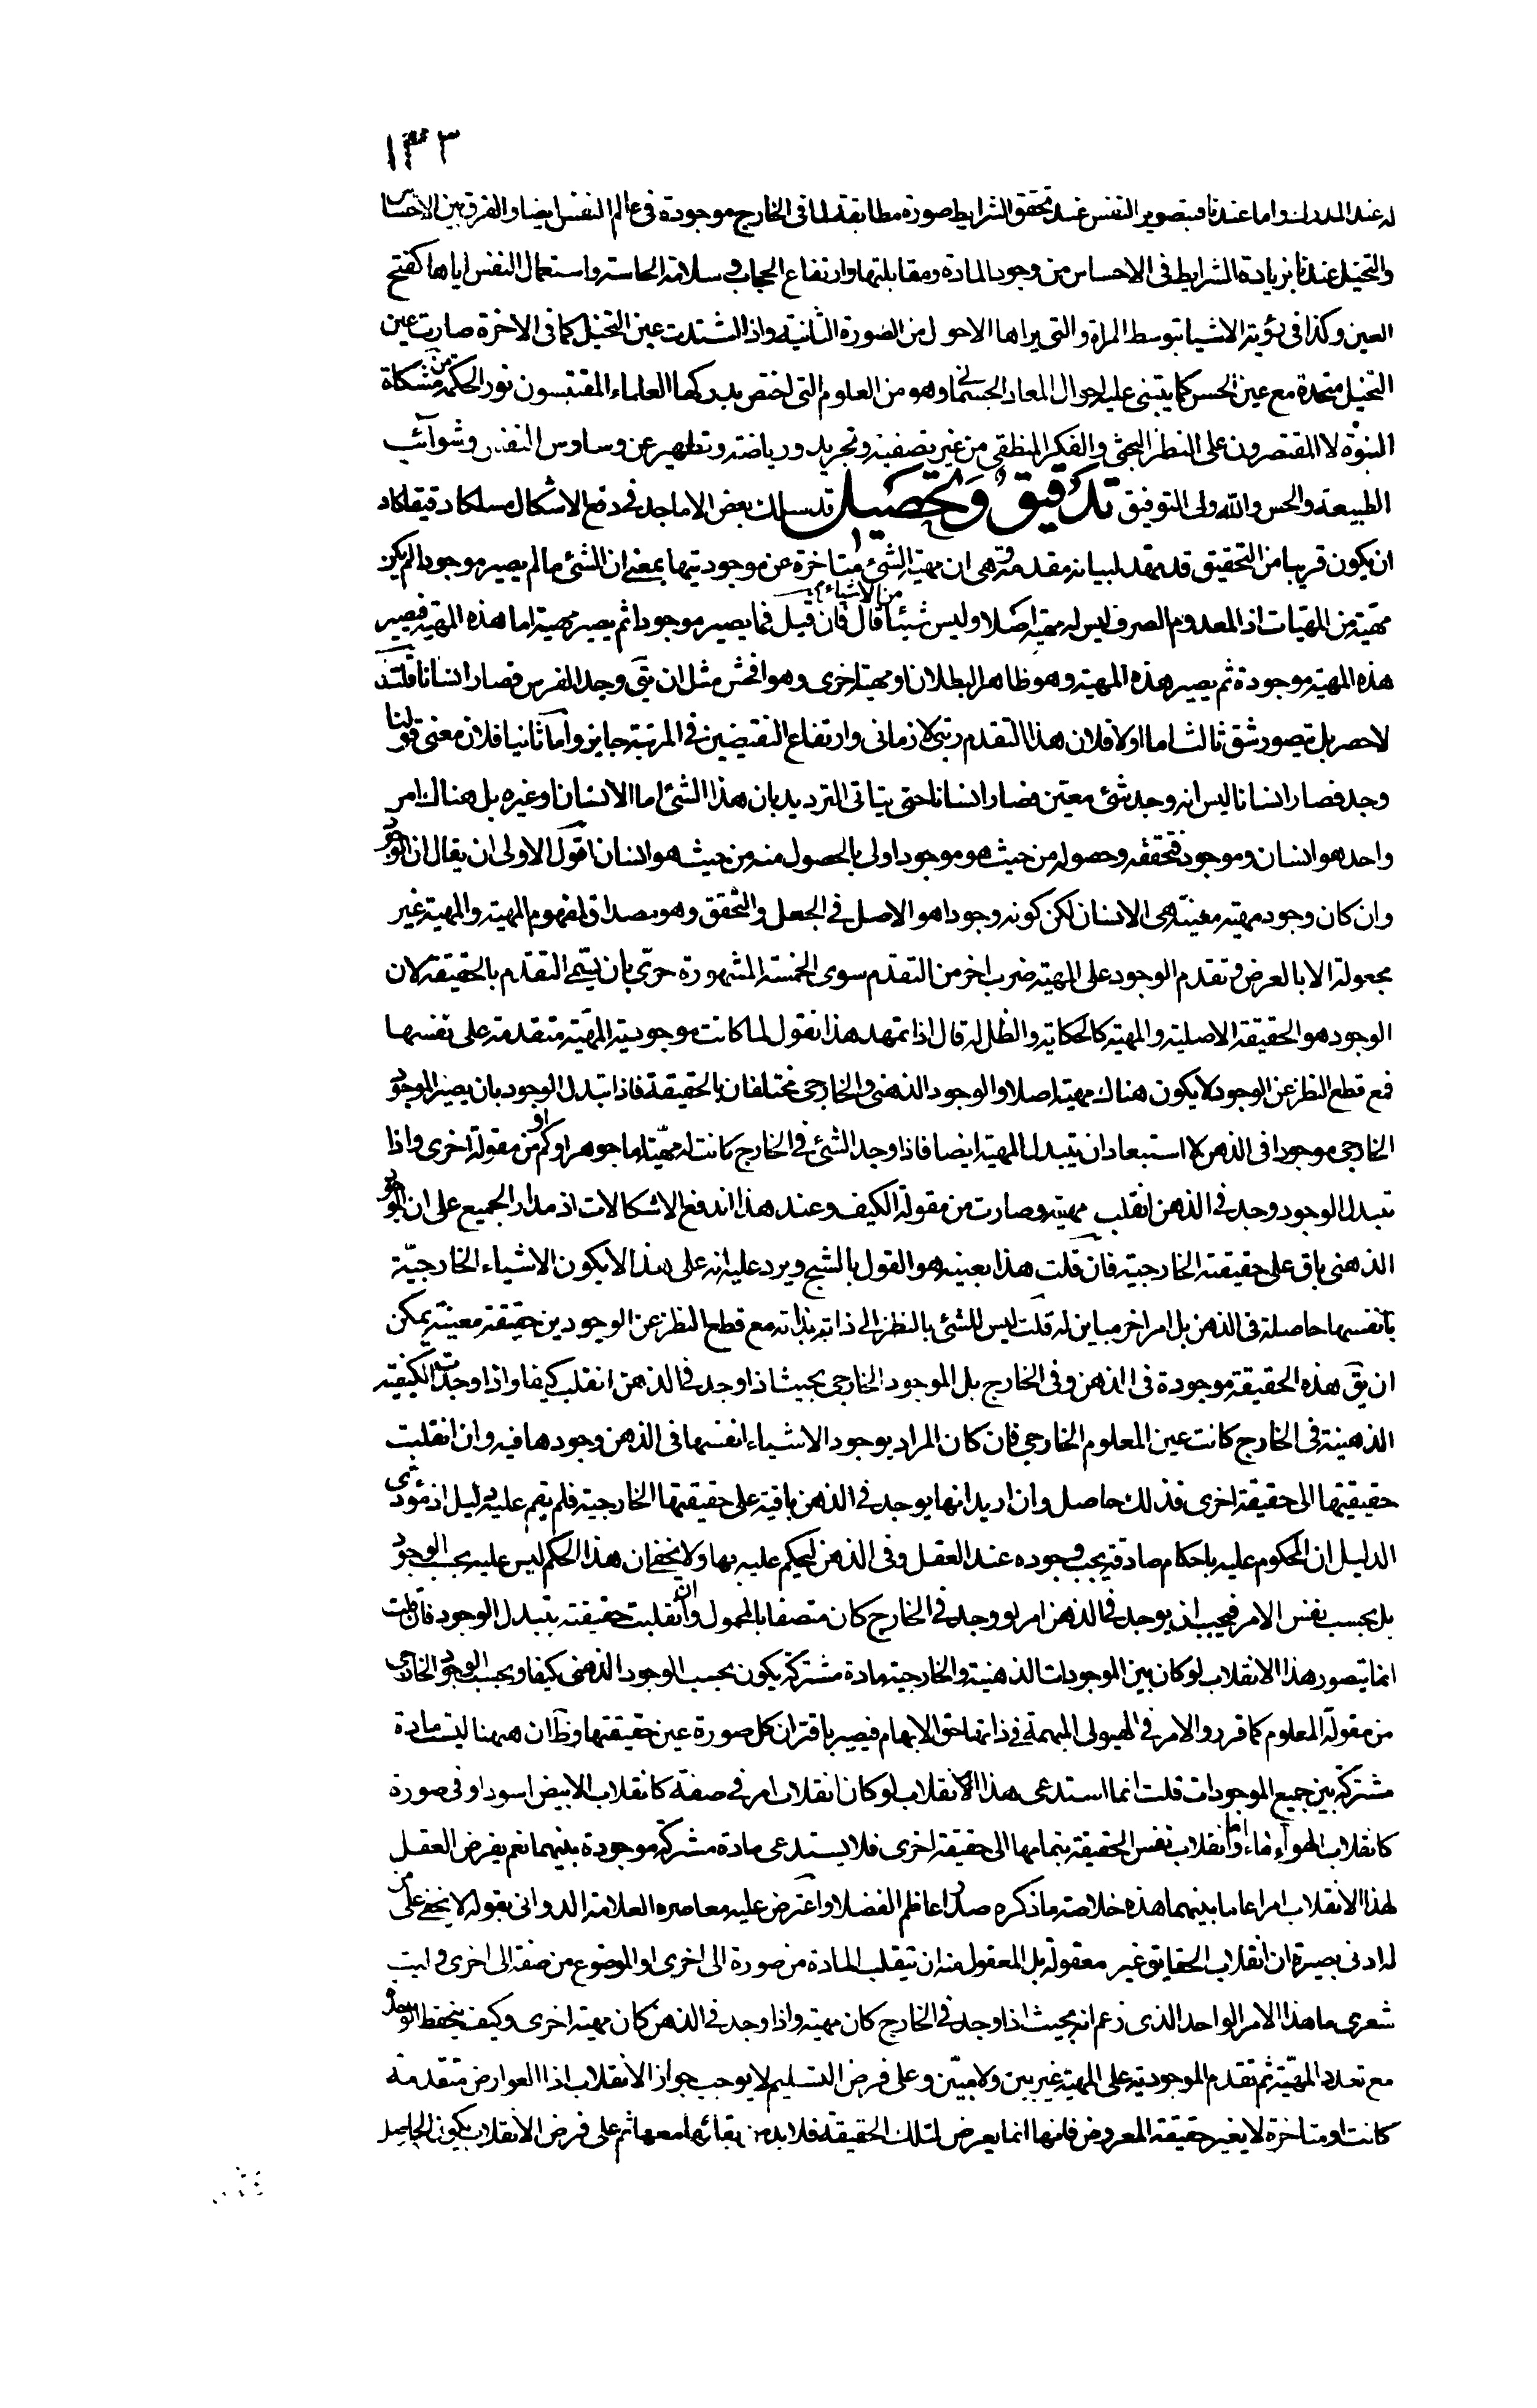 ١٣٣
له عند المدرك واما عندنا فبتصوير النفس عند تحقق الشرايط صورة مطابقة لما فى الخارج موجودة فى عالم النفس ايضا والفرق بين الاحساس
والتخيل عندنا بزيادة الشرايط فى الاحساس من وجود المادة ومقابلتها وارتفاع الحجاب وسلامة الحاسة واستعمال النفس اياها كفتح
العين وكذا فى رؤية الاشيا بتوسط المراة والتى يراها الاحول من الصورة الثانية واذا اشتدت عين التخيل كما فى الاخرة صارت عين
التخيل متحدة مع عين الحس كما يبتنى عليه احوال المعاد الجسمانى وهو من العلوم التى اختص بدركها العلماء المقتبسون نور الحكمة من مشكاة
النبوة لا المقتصرون على النظر البحثى والفكر المنطقى من غير تصفية وتجريد ورياضة وتطهير عن وساوس النفس وشوآئب
الطبيعة والحس والله ولى التوفيق تدقيق وتحصيل قد سلك بعض الاماجد فى دفع الاشكال مسلكا دقيقا كاد
ان يكون قريبا من التحقيق قد مهد لبيانه مقدمة وهى ان مهية الشئ متاخرة عن موجوديتها بمعنى ان الشئ ما لم يصير موجودا لم يكن
مهية من المهيات اذ المعدوم الصرف ليس له مهية اصلا وليس شيئا من الاشياء قال فان قيل فما يصير موجودا ثم يصير مهية اما هذه المهية فيصير
هذه المهية موجودة ثم يصير هذه المهية وهو ظاهر البطلان او مهية اخرى وهو افحش مثل ان يق وجد الفرس فصار انسانا قلت
لا حصر بل يتصور شق ثالث اما اولا فلان هذا التقدم رتبى لا زمانى وارتفاع النقيضين فى المرتبة جايز وآما ثانيا فلان معنى قولنا
وجد فصار انسانا ليس انه وجد شئ معين فصار انسانا حتى يتاتى الترديد بان هذا الشئ اما الانسان او غيره بل هناك امر
واحد هو انسان وموجود فتحققه وحصوله من حيث هو موجود اولى بالحصول منه من حيث هو انسان اقول الاولى ان يقال ان الوجود
وان كان وجود مهية معينة هى الانسان لكن كونه وجودا هو الاصل فى الجعل والتحقق وهو مصداق لمفهوم المهية والمهية غير
مجعولة الا بالعرض وتقدم الوجود على المهية ضرب اخر من التقدم سوى الخمسة المشهورة حرى بان يسمى التقدم بالحقيقة لان
الوجود هو الحقيقة الاصلية والمهية كالحكاية والظل له قال اذا تمهد هذا نقول لما كانت موجودية المهية متقدمة على نفسها
فمع قطع النظر عن الوجود لا يكون هناك مهية اصلا والوجود الذهنى والخارجى مختلفان بالحقيقة فاذا تبدل الوجود بان يصير الموجود
الخارجى موجودا فى الذهن لا استبعاد ان يتبدل المهية ايضا فاذا وجد الشئ فى الخارج كانت له مهية اما جوهر او كم او من مقولة اخرى واذا
تبدل الوجود وجد فى الذهن انقلب مهيته وصارت من مقولة الكيف وعند هذا اندفع الاشكالات اذ مدار الجميع على ان الموجود
الذهنى باق على حقيقته الخارجية فان قلت هذا بعينه هو القول بالشبح ويرد عليه انه على هذا لا يكون الاشياء الخارجية
بانفسها حاصلة فى الذهن بل امر اخر مباين له قلت ليس للشئ بالنظر الى ذاته بذاته مع قطع النظر عن الوجودين حقيقة معينة يمكن
ان يق هذه الحقيقة موجودة فى الذهن وفى الخارج بل الموجود الخارجى بحيث اذا وجد فى الذهن انقلب كيفا واذا وجدت الكيفية
الذهنية فى الخارج كانت عين المعلوم الخارجى فان كان المراد بوجود الاشياء انفسها فى الذهن وجودها فيه وان انقلبت
حقيقتها الى حقيقة اخرى فذلك حاصل وان اريد انها يوجد فى الذهن باقية على حقيقتها الخارجية فلم يقم عليه دليل اذ مؤدى
الدليل ان المحكوم عليه باحكام صادقة يجب وجوده عند العقل وفى الذهن ليحكم عليه بها ولا يخفى ان هذا الحكم ليس عليه بحسب الوجود
بل بحسب نفس الامر فيجب ان يوجد فى الذهن امر لو وجد فى الخارج كان متصفا بالمحمول وان انقلبت حقيقته بتبدل الوجود فان قلت
انما يتصور هذا الانقلاب لو كان بين الموجودات الذهنية والخارجية مادة مشتركة يكون بحسب الوجود الذهنى كيفا وبحسب الوجود الخارجى
من مقولة المعلوم كما قرروا الامر فى الهيولى المبهمة فى ذاتها حق الابهام فيصير باقتران كل صورة عين حقيقتها وظ ان ههنا ليست مادة
مشتركة بين جميع الموجودات قلت انما استدعى هذا الانقلاب لو كان انقلاب امر فى صفة كانقلاب الابيض اسود او فى صورة
كانقلاب الهوآء ماء واما انقلاب نفس الحقيقة بتمامها الى حقيقة اخرى فلا يستدعى مادة مشتركة موجودة بينهما نعم يفرض العقل
لهذا الانقلاب امرا عاما بينهما هذه خلاصة ما ذكره صدر اعاظم الفضلا واعترض عليه معاصره العلامة الدوانى بقوله لا يخفى على من
له ادنى بصيرة ان انقلاب الحقايق غير معقول بل المعقول منه ان ينقلب المادة من صورة الى اخرى او الموضوع من صفة الى اخرى وليت
شعرى ما هذا الامر الواحد الذى زعم انه بحيث اذا وجد فى الخارج كان مهية واذا وجد فى الذهن كان مهية اخرى وكيف ينحفظ الوحدة
مع تعدد المهية ثم تقدم الموجودية على المهية غير بين ولا مبين وعلى فرض التسليم لا يوجب جواز الانقلاب اذ العوارض متقدمة
كانت او متاخرة لا يغير حقيقة المعروض فانها انما يعرض لتلك الحقيقة فلا بد من بقائها معها ثم على فرض الانقلاب يكون الحاصل